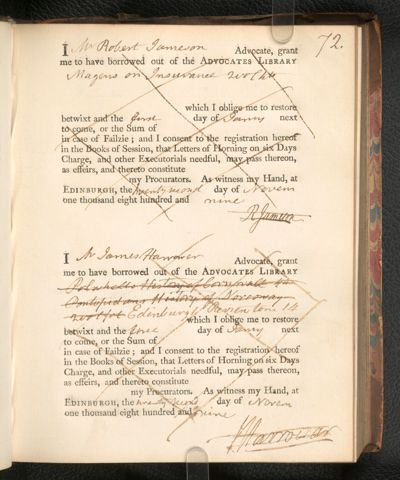 72.
I Mr Robert Jameson Advocate, grant
me to have borrowed out of the ADVOCATES LIBRARY
Magens on Insurance 2 vol 4to
which I oblige me to restore
betwixt and the first day of Janry next
to come, or the Sum of
in case of Failzie; and I consent to the registration hereof
in the Books of Session, that Letters of Horning on six Days
Charge, and other Executorials needful, may pass thereon,
as effeirs, and thereto constitute
my Procurators. As witness my Hand, at
EDINBURGH, the twenty second day of Novem
one thousand eight hundred and nine
R Jameson
I Mr James Harrower Advocate, grant
me to have borrowed out of the ADVOCATES LIBRARY
Polwhele's History of Cornwall
History of
Edenburgh Review tom 14
which I oblige me to restore
betwixt and the first day of Janry next
to come, or the Sum of
in case of Failzie; and I consent to the registration hereof
in the Books of Session, that Letters of Horning on six Days
Charge, and other Executorials needful, may pass thereon,
as effeirs, and thereto constitute
my Procurators. As witness my Hand, at
EDINBURGH, the twenty second day of Novem
one thousand eight hundred and nine
J Harrower